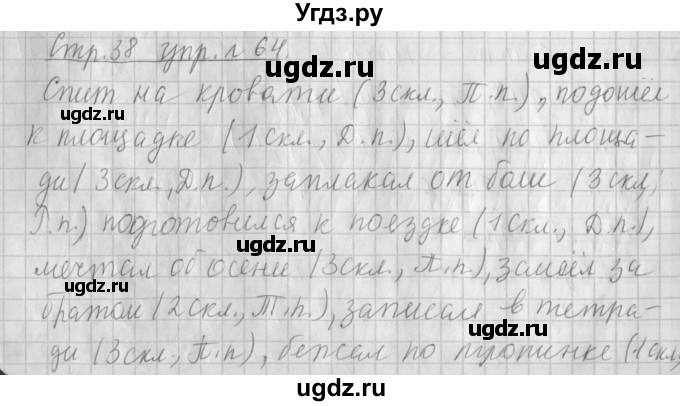 Угдз.ру
Стр.38 упр. № 64.
Спит на кровати (3скл., П.п.), подошёл
к площадке (1скл., Д.п.), шёл по площа-
ди (3скл., Д.п.), заплакал от боли (3скл,
Р.п.) подготовился к поездке (1скл., Д.п.),
мечтал об осени (3скл., П.п.), зашёл за
братом (2скл., Т.п.), записал в тетра-
ди (3скл., П.п), бежал по тропинке (1скл,
ugdz.ru
ugdz.ru
ugdz.ru
ugdz.ru
ugdz.ru
ugdz.ru
ugdz.ru
ugdz.ru
ugdz.ru